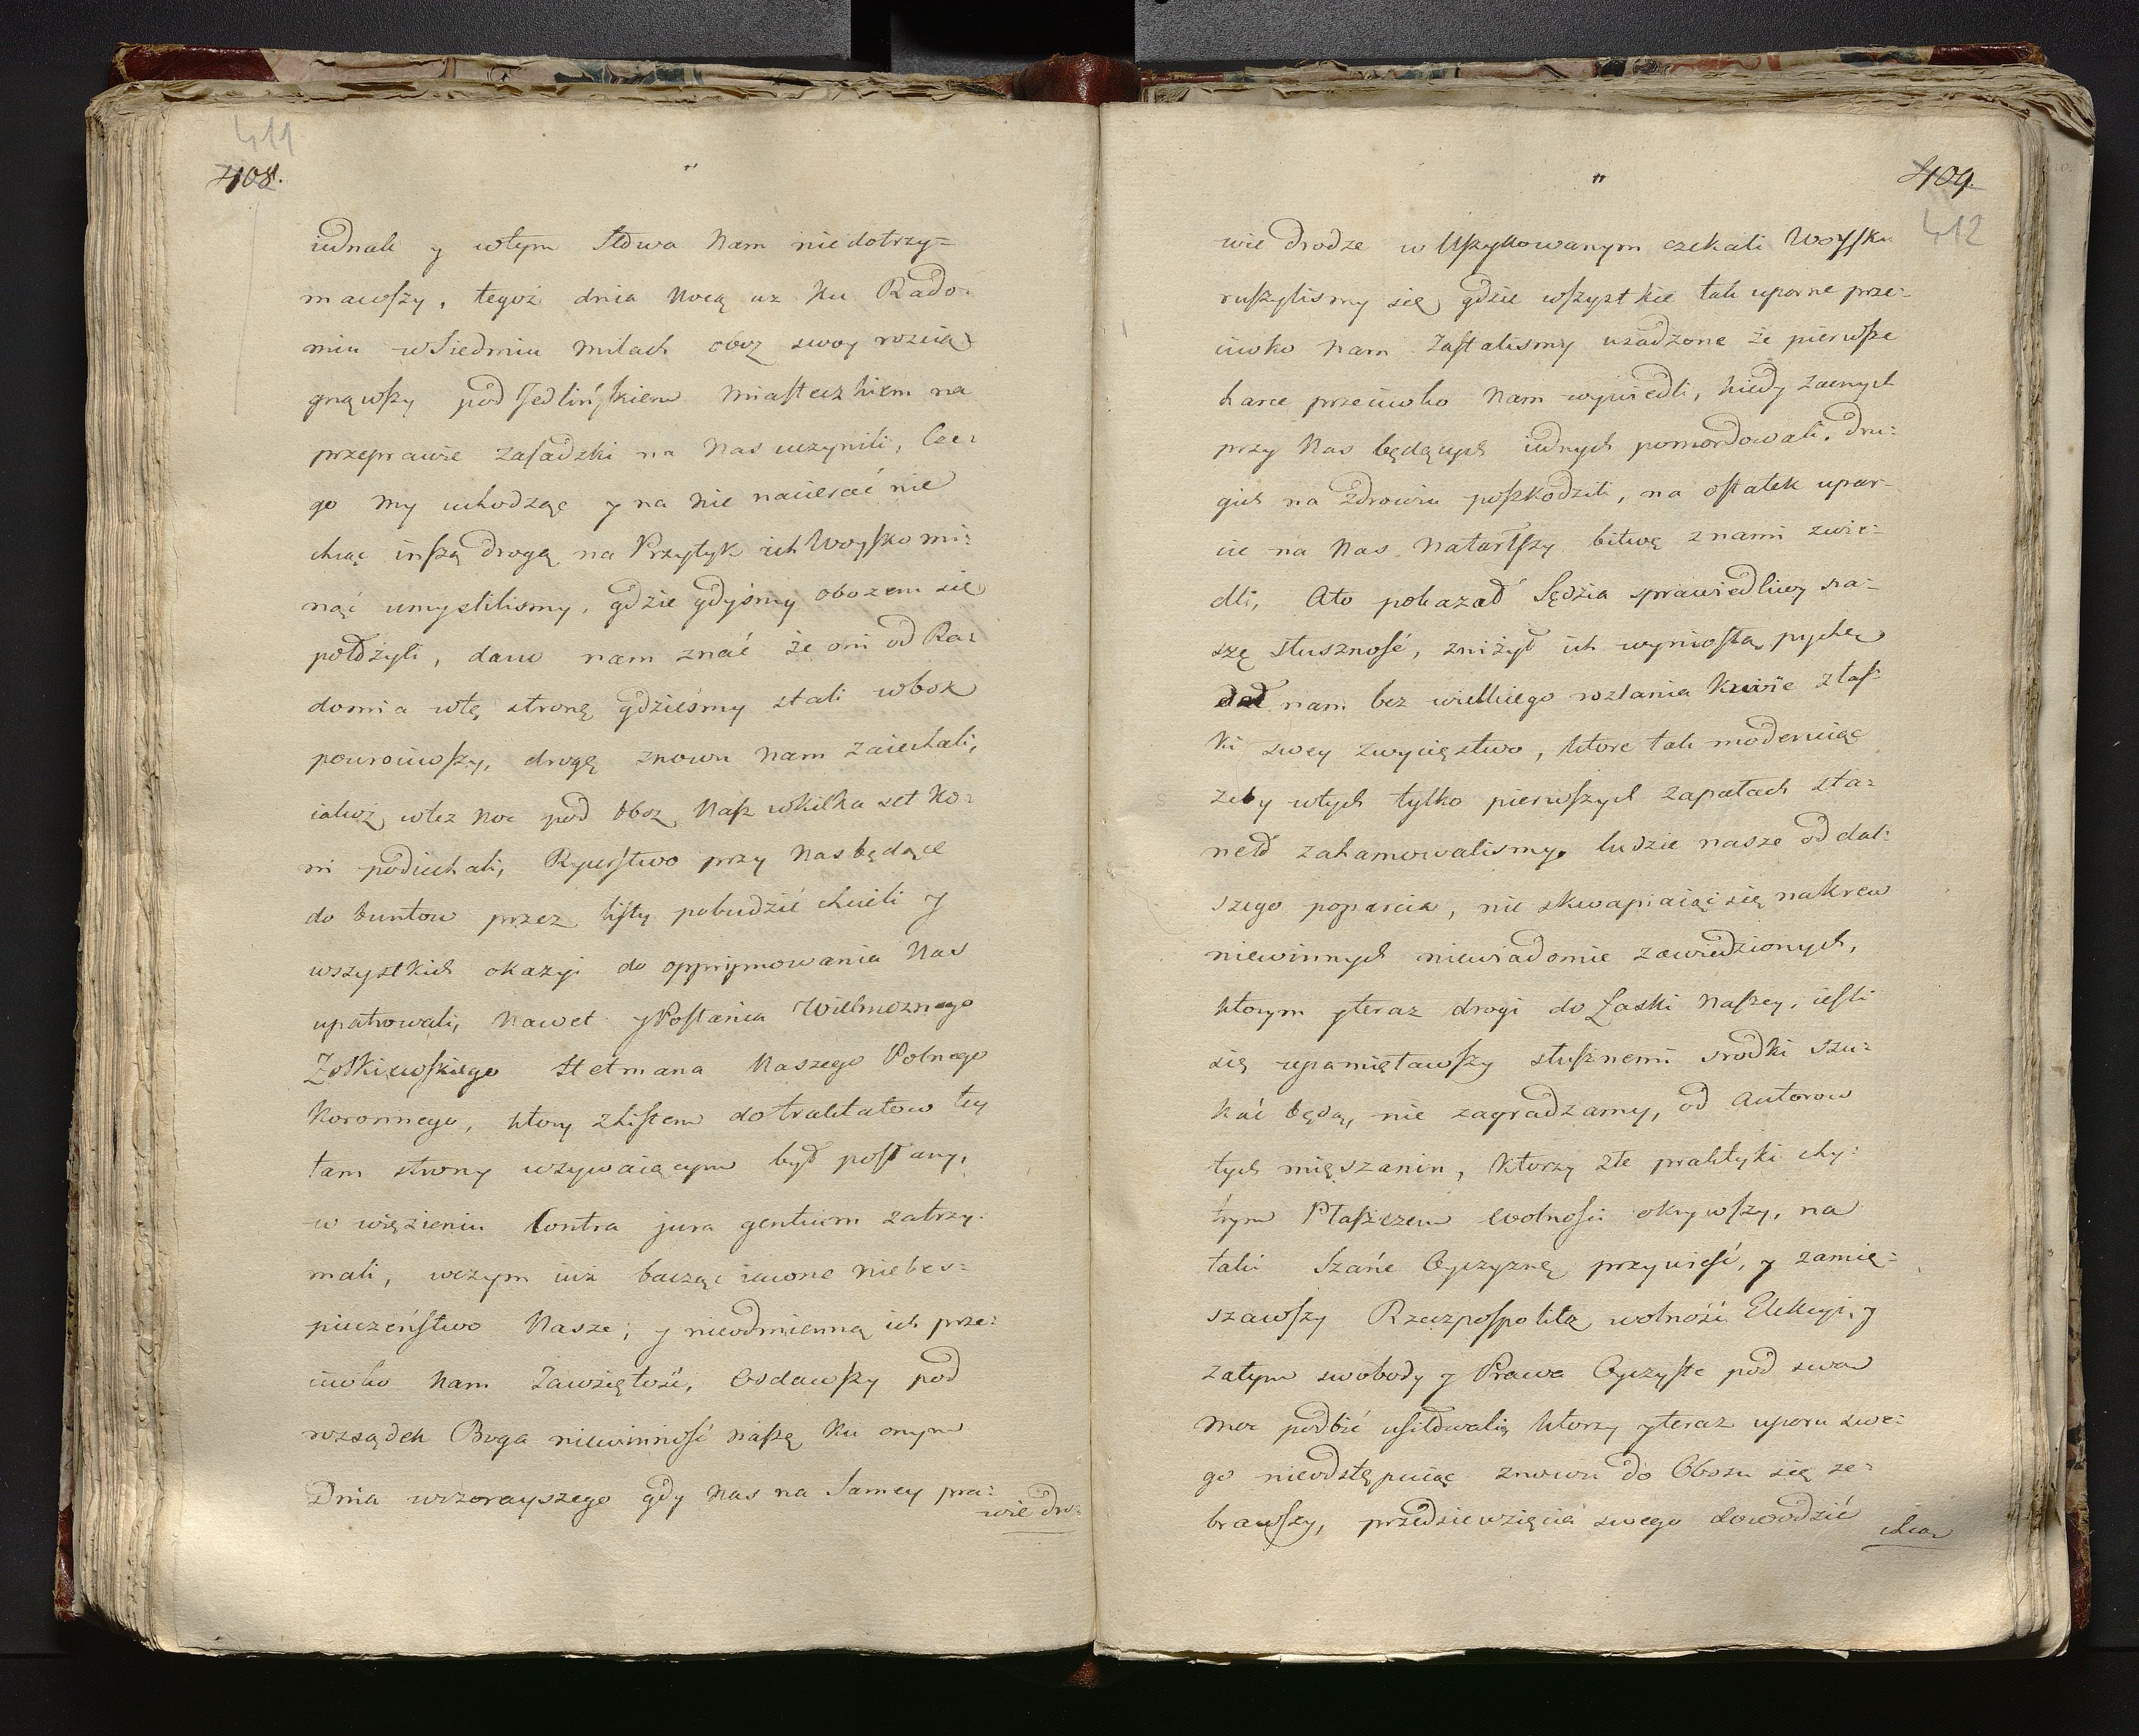 411
408.
"
iednak y wtym słowa Nam niedotrzy=
mawszy, tegoż dnia Nocą az ku Rado=
miu w Siedmiu Milach oboz swoy rozcią=
gnąwszy pod Jedlińskiem Miasteczkiem na
przeprawie zasadzki na Nas uczynili, Cze=
go My uchodząc y na nie nacierać nie
chcąc inszą drogą na Przytyk ich Woysko mi=
nąć umyslilismy, gdzie gdyśmy obozem się
położyli, dano nam znać że oni od Ra=
domia wtę stronę gdzieśmy stali wbok
powrociwszy, drogę znowu Nam zaiechali,
iakoż wtez Noc pod Oboz Nasz wkilka set ko=
ni podiechali, Rycerstwo przy Nas będące
do buntow przez listy pobudzić chcieli y
wszystkich okazyi do opprymowania Nas
upatrowali, Nawet y Posłańca Wielmoznego
Zołkiewskiego Hetmana Naszego Polnego
Koronnego, ktory z listem do traktatow tey
tam strony wzywaiącym był posłany,
w więzieniu Contra jura gentium zatrzy=
mali, wczym iuż bacząc iawne niebes=
pieczeństwo Nasze, y nieodmienną ich prze=
ciwko Nam Zawziętość, Oddawszy pod
rozsądek Boga niewinność naszę ku onym
Dnia wczorayszego gdy Nas na Samey pra=
wie dro=
"
409.
412
wie drodze w Uszykowanym czekali Woysku
ruszylismy się, gdzie wszystkie tak uporne prze=
ciwko Nam Zastalismy usadzone że pierwsze
harce przeciwko Nam wywiedli, kiedy zacnych
przy Nas będących iednych pomordowali, dru=
gich na zdrowiu poszkodzili, na ostatek upar=
cie na Nas Natarłszy bitwę znami zwie=
dli, Ato pokazał Sędzia sprawiedliwy na=
szę słuszność, zniżył ich wyniosłą pychę
dał nam bez wielkiego rozlania Krwie złas=
ki swey zwycięstwo, ktore tak moderuiąc
zeby wtych tylko pierwszych zapałach sta=
nęło zahamowalismy ludzie nasze od dal=
szego poparcia, nie skwapiaiąc się nakrew
niewinnych niewiadomie zawiedzionych,
ktorym yteraz drogi do Łaski Naszey, iesli
się upamiętawszy słusznemi srodki szu=
kać będą, nie zagradzamy, od Autorow
tych mięszanin, Ktorzy złe praktyki chy=
trym Płaszczem wolności okrywszy, na
takie Szańc Oyczyznę przywieść, y zamię=
szawszy Rzeczpospolitą wolność Elekcyi, y
zatym swobody y Prawa Oyczyste pod swą
moc podbić usiłowali, ktorzy yteraz uporu swe=
go nieodstępuiąc znowu do Obozu się ze=
brawszy, przedsiewzięcia swego dowodzić
chcą